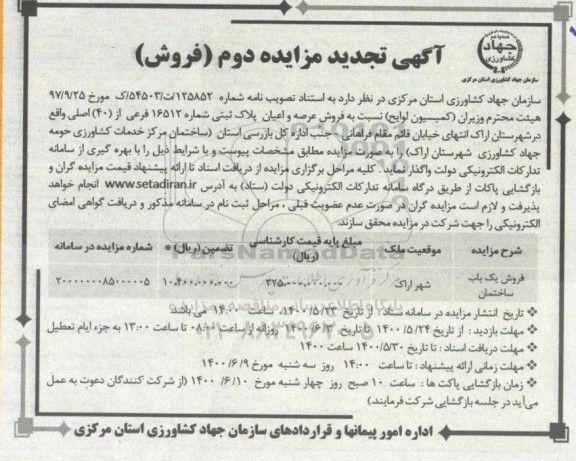 جهاد کشاورزی
سازمان جهاد کشاورزی استان مرکزی
آگهی تجدید مزایده دوم (فروش)
سازمان جهاد کشاورزی استان مرکزی در نظر دارد به استناد تصویب نامه شماره ۱۲۵۸۵۲/ت/۵۴۵۰۳ک مورخ ۹۷/۹/۲۵
هیئت محترم وزیران (کمیسیون لوایح) نسبت به فروش عرصه و اعیان پلاک ثبتی شماره ۱۶۵۱۲ فرعی از (۴۰) اصلی واقع
درشهرستان اراک انتهای خیابان قائم مقام فراهانی - جنب اداره کل بازرسی استان (ساختمان مرکز خدمات کشاورزی حومه
جهاد کشاورزی شهرستان اراک) را به صورت مزایده مطابق مشخصات پیوست و با شرایط ذیل را با بهره گیری از سامانه
تدارکات الکترونیکی دولت واگذار نماید . کلیه مراحل برگزاری مزایده از دریافت اسناد تا ارائه پیشنهاد قیمت مزایده گران و
بازگشایی پاکات از طریق درگاه سامانه تدارکات الکترونیکی دولت (ستاد) به آدرس www.setadiran.ir انجام خواهد
پذیرفت و لازم است مزایده گران در صورت عدم عضویت قبلی ، مراحل ثبت نام در سامانه مذکور و دریافت گواهی امضای
الکترونیکی را جهت شرکت در مزایده محقق سازند.
شرح مزایده موقعیت ملک مبلغ پایه قیمت کارشناسی (ریال) تضمین (ریال) شماره مزایده در سامانه
فروش یک باب ساختمان شهر اراک ۲۰۰۰۰۰۰۰۸۵۰۰۰۰۰۵
ParsNamadData
پایگاه اطلاع رسانی مناقصه و مزایده
❖ تاریخ انتشار مزایده در سامانه ستاد : از تاریخ ۱۴۰۰/۵/۲۳ ساعت ۱۴:۰۰ می باشد
❖ مهلت بازدید : از تاریخ ۱۴۰۰/۵/۲۴ تا تاریخ ۱۴۰۰/۶/۲ روزانه از ساعت ۰۸:۰۰ تا ساعت ۱۳:۰۰ به جزء ایام تعطیل
❖ مهلت دریافت اسناد : تا تاریخ ۱۴۰۰/۵/۳۰ ساعت ۱۴:۰۰
❖ مهلت زمانی ارائه پیشنهاد : تا ساعت ۱۴:۰۰ روز سه شنبه مورخ ۱۴۰۰/۶/۹
❖ زمان بازگشایی پاکت ها : ساعت ۱۰ صبح روز چهار شنبه مورخ ۱۴۰۰/۶/۱۰ (از شرکت کنندگان دعوت به عمل
می آید در جلسه بازگشایی شرکت فرمایند.)
اداره امور پیمانها و قراردادهای سازمان جهاد کشاورزی استان مرکزی